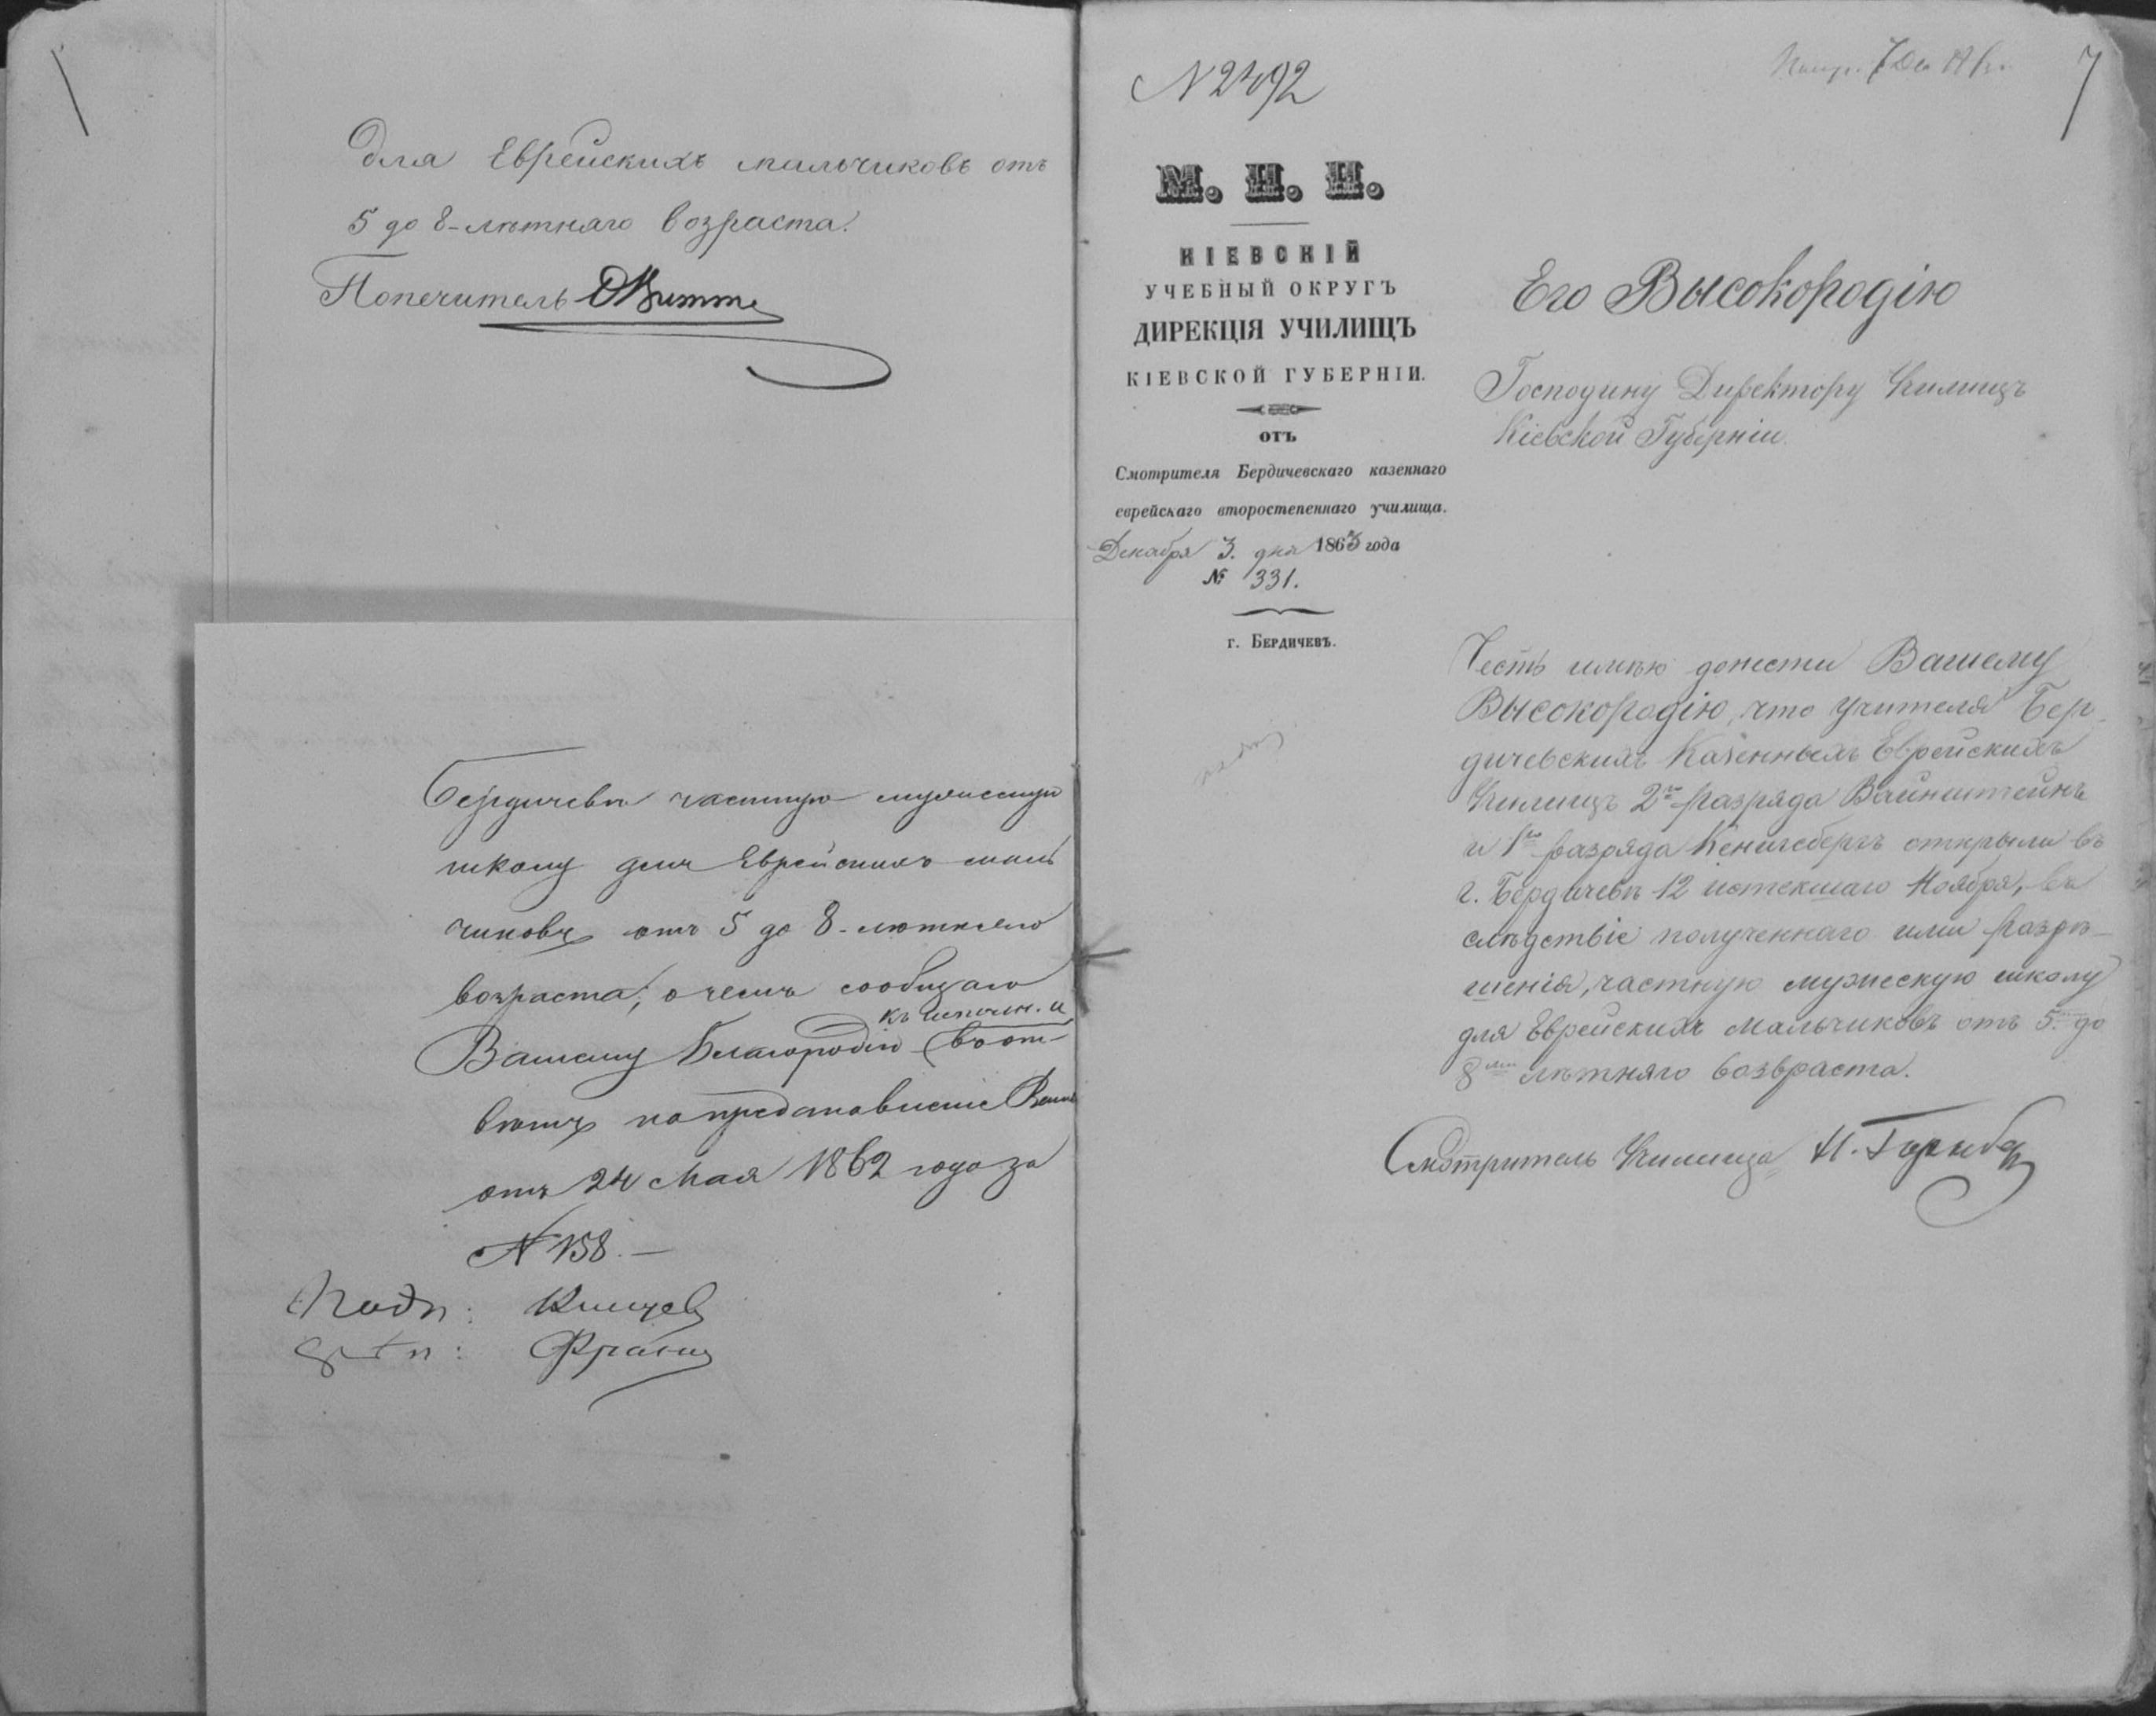 для Еврейскихъ мальчиковъ отъ
5 до 8-лѣтняго возраста.
Попечитель Ѳ Витте
Бердичевѣ частную мужескую
школу для Еврейскихъ маль
чиковъ отъ 5 до 8-лѣтняго
возраста; о чемъ сообщаю
къ исполн. и
Вашему Благородію въ от-
вѣтъ на представленіе Ваше
отъ 24 Мая 1862 года за
№ 158.—
Подп:
№ 2492
7
М. Н. П.
КІЕВСКІЙ
УЧЕБНЫЙ ОКРУГЪ
ДИРЕКЦІЯ УЧИЛИЩЪ
КІЕВСКОЙ ГУБЕРНІИ.
отъ
Смотрителя Бердичевскаго казеннаго
еврейскаго второстепеннаго училища.
Декабря 3. дня 1863 года
№ 331.
г. Бердичевъ.
Его Высокородію
Господину Директору Училищъ
Кіевской Губерніи.
Честь имѣю донести Вашему
Высокородію, что учителя Бер-
дичевскихъ Казенныхъ Еврейскихъ
Училищъ 2го разряда Вайнштейнъ
и 1го разряда Кенигсбергъ открыли въ
г. Бердичевѣ 12 истекшаго Ноября, въ
слѣдствіе полученнаго ими разрѣ-
шенія, частную мужескую школу
для Еврейскихъ Мальчиковъ отъ 5. до
8ми лѣтняго возвраста.
Смотритель Училища